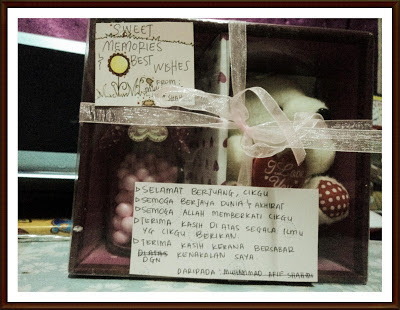 SWEET
MEMORIES
BEST
WISHES
FROM:
I Love
You
▷ SELAMAT BERJUANG, CIKGU
▷ SEMOGA BERJAYA DUNIA & AKHIRAT
▷ SEMOGA ALLAH MEMBERKATI CIKGU
▷ TERIMA KASIH DI ATAS SEGALA ILMU
YG CIKGU BERIKAN.
▷ TERIMA KASIH KERANA BERSABAR
DGN KENAKALAN SAYA.
DARIPADA: MUHAMMAD AFIF